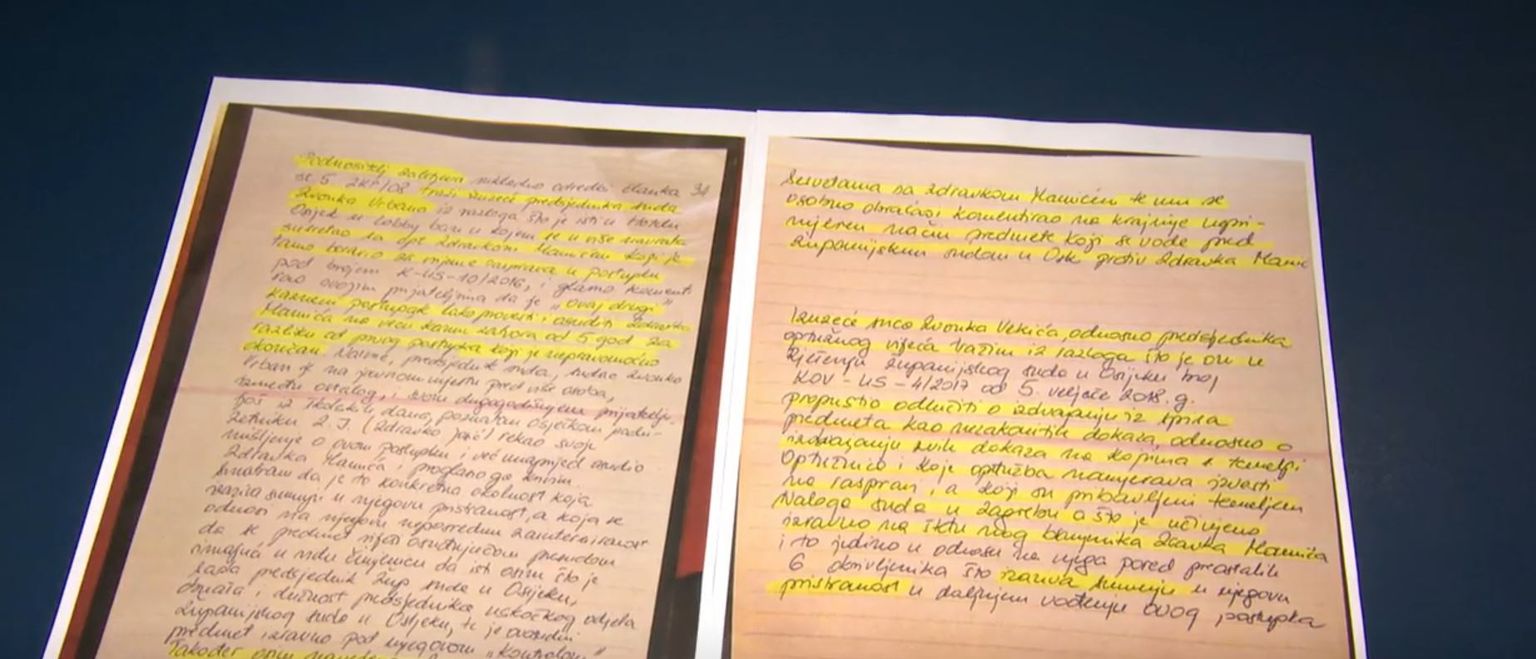 Podnositelj zahtjeva sukladno odredbi članka 34
st. 5 ZKP/08 traži izuzeće predsjednika suda
Zvonka Vrbana iz razloga što je isti u Hotelu
Osijek u lobby baru u kojem se u više navrata
susretao sa opt. Zdravkom Mamićem koji je
tamo boravio za vrijeme rasprava u postupku
pod brojem K-US-10/2016, i glasno komenti
rao svojim prijateljima da je „ovaj drugi"
kazneni postupak lako provesti i osuditi Zdravka
Mamića na veću kaznu zatvora od 5 god. za
razliku od prvog postupka koji je nepravomoćno
okončan. Naime, predsjednik suda, sudac Zvonko
Vrban je na javnom mjestu pred više osoba,
između ostalog, i svom dugogodišnjem prijatelju
još iz školskih dana, poznatom osječkom podu-
zetniku Z. J. (Zdravko) rekao svoje
mišljenje o ovom postupku i već unaprijed osudio
Zdravka Mamića i proglasio ga krivim.
Smatram da je to konkretna okolnost koja
izaziva sumnju u njegovu pristranost, a koja se
odnosi na njegovu neposrednu zainteresiranost
da se predmet riješi osuđujućom presudom
imajući u vidu činjenicu da isti osim što je
sada predsjednik Žup. suda u Osijeku,
obnaša i dužnost predsjednika uskočkog odjela
Županijskog suda u Osijeku, te je ovosudni
predmet izravno pod njegovom „kontrolom"
Također osim
susretama sa Zdravkom Mamićem te mu se
osobno obraćao i komentirao na krajnje neprі-
mjeren način predmete koji se vode pred
županijskim sudom u Os. protiv Zdravka Mamića
Izuzeće suca Zvonka Vekića, odnosno predsjednika
optužnog vijeća tražim iz razloga što je on u
Rješenju Županijskog suda u Osijeku broj
KOV-US-4/2017 od 5. veljače 2018. g.
propustio odlučiti o izdvajanju iz spisa
predmeta kao nezakonitih dokaza, odnosno o
izdvajanju svih dokaza na kojima se temelji
Optužnica i koje optužba namjerava izvesti
na raspravi, a koji su pribavljeni temeljem
Naloga suda u Zagrebu a što je učinjeno
izravno na štetu mog branjenika Zdravka Mamića
i to jedino u odnosu na njega pored preostalih
6 okrivljenika što izaziva sumnju u njegovu
pristranost u daljnjem vođenju ovog postupka